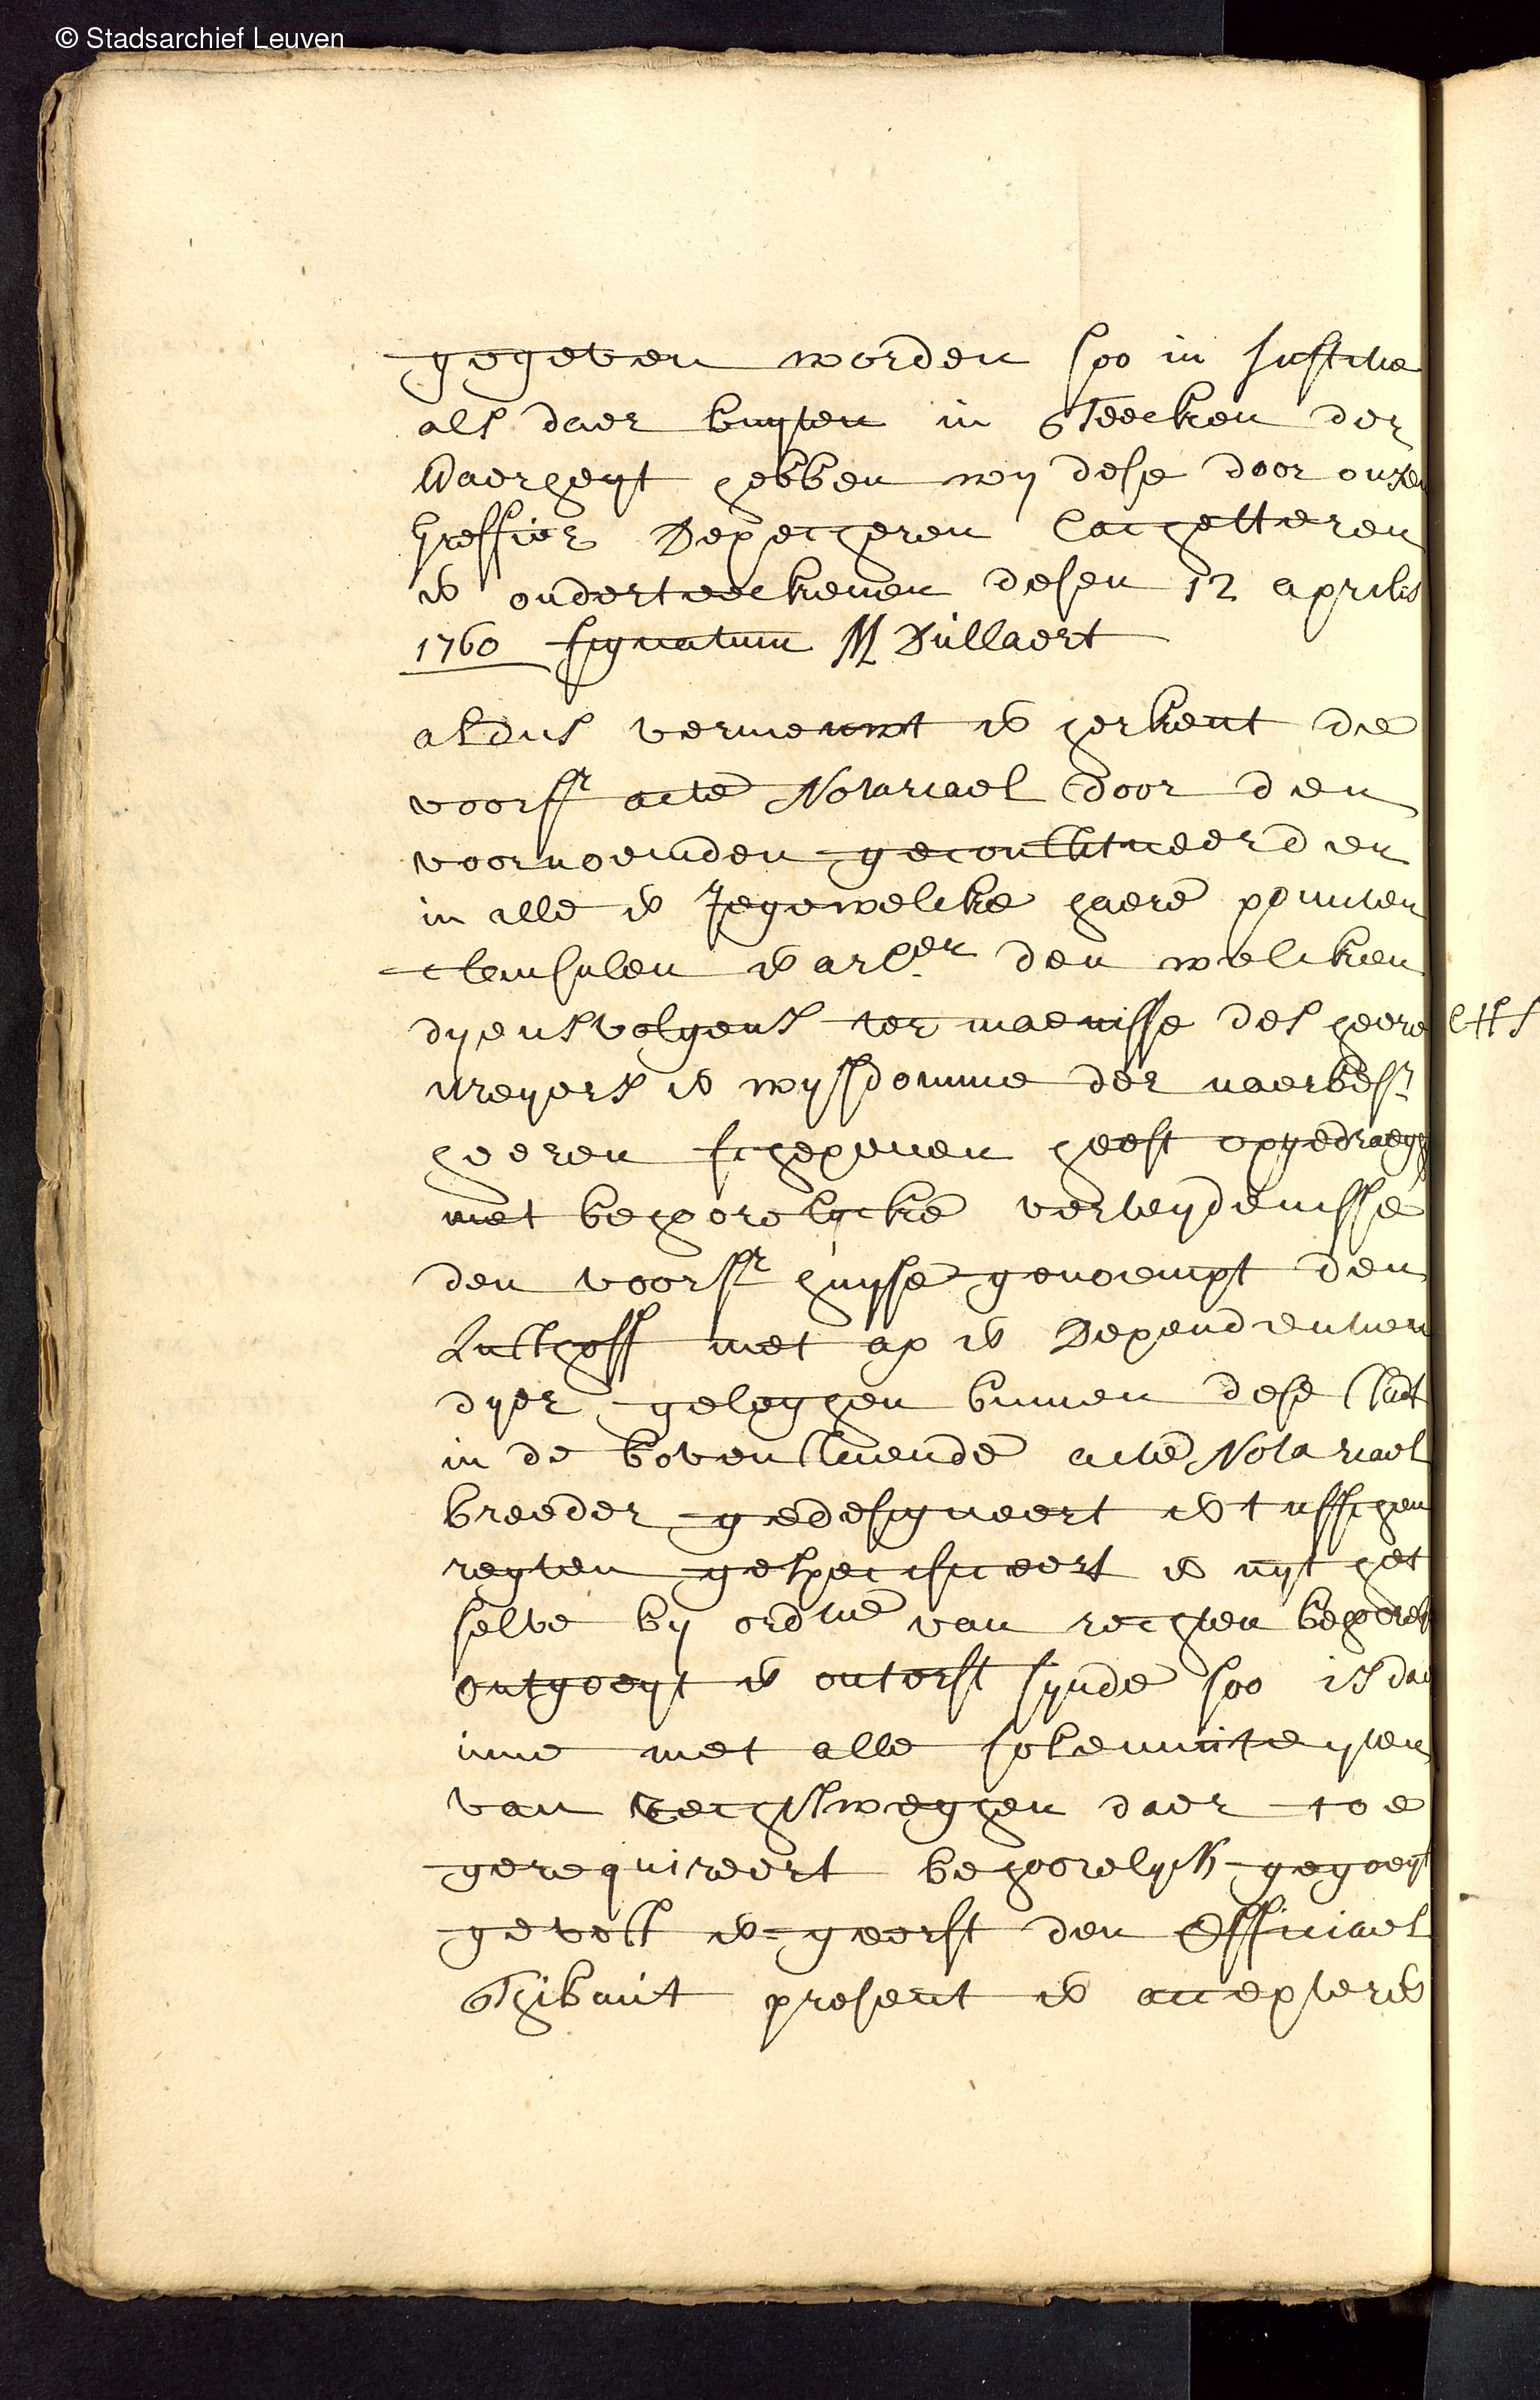 © Stadsarchief Leuven
gegeven worden soo in justitie
als daer buyten in teecken der
Waerheyt hebben wij dese door onzen
Greffier Depecheren Cachetteren
et onderteekenen desen 12 aprilis
1760 signatum M Dullaert
aldus vernieuwt et herkent de
voorsr acte Notariael door den
voornoemden geconstitueerden
in alle et Jegewelcke haere poincten
clausulen et arlen den welcken
dyensvolgens ter maenisse des heere
meyers et wijsdomme der naerbesr
heeren schepenen heeft opgedraegh
met behoorelycke verteydenisse
den voorsr huyse genoempt den
met ap et Dependentien
dyer geleghen binnen dese stadt
in de bovenstaende acte Notariael
breeder gedesigneert et tusschen
reyten gespecificeert et uyt het
selve by ordne van rechten behoorel
ontgoeyt et onterft synde soo is daer
inne met alle solemniteyten
van rechtsweghen daer toe
gerequireert behoorelyck gegoeyt
gevest et geerft den Officiael
Thibaut present et accepteret